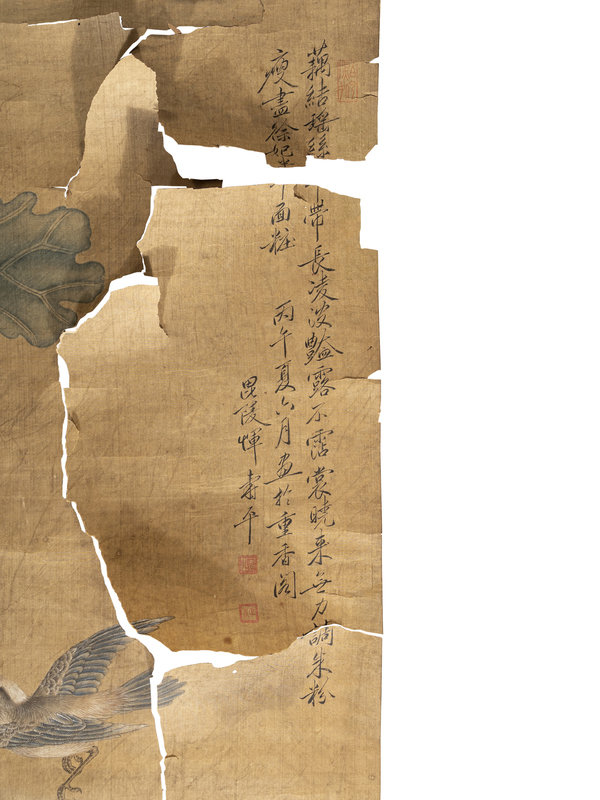 藕結瑤絲帶長凌波豔露不霑裳曉來無力調朱粉
瘦盡徐妃半面粧 丙午夏六月画於重香閣
毘陵惲壽平